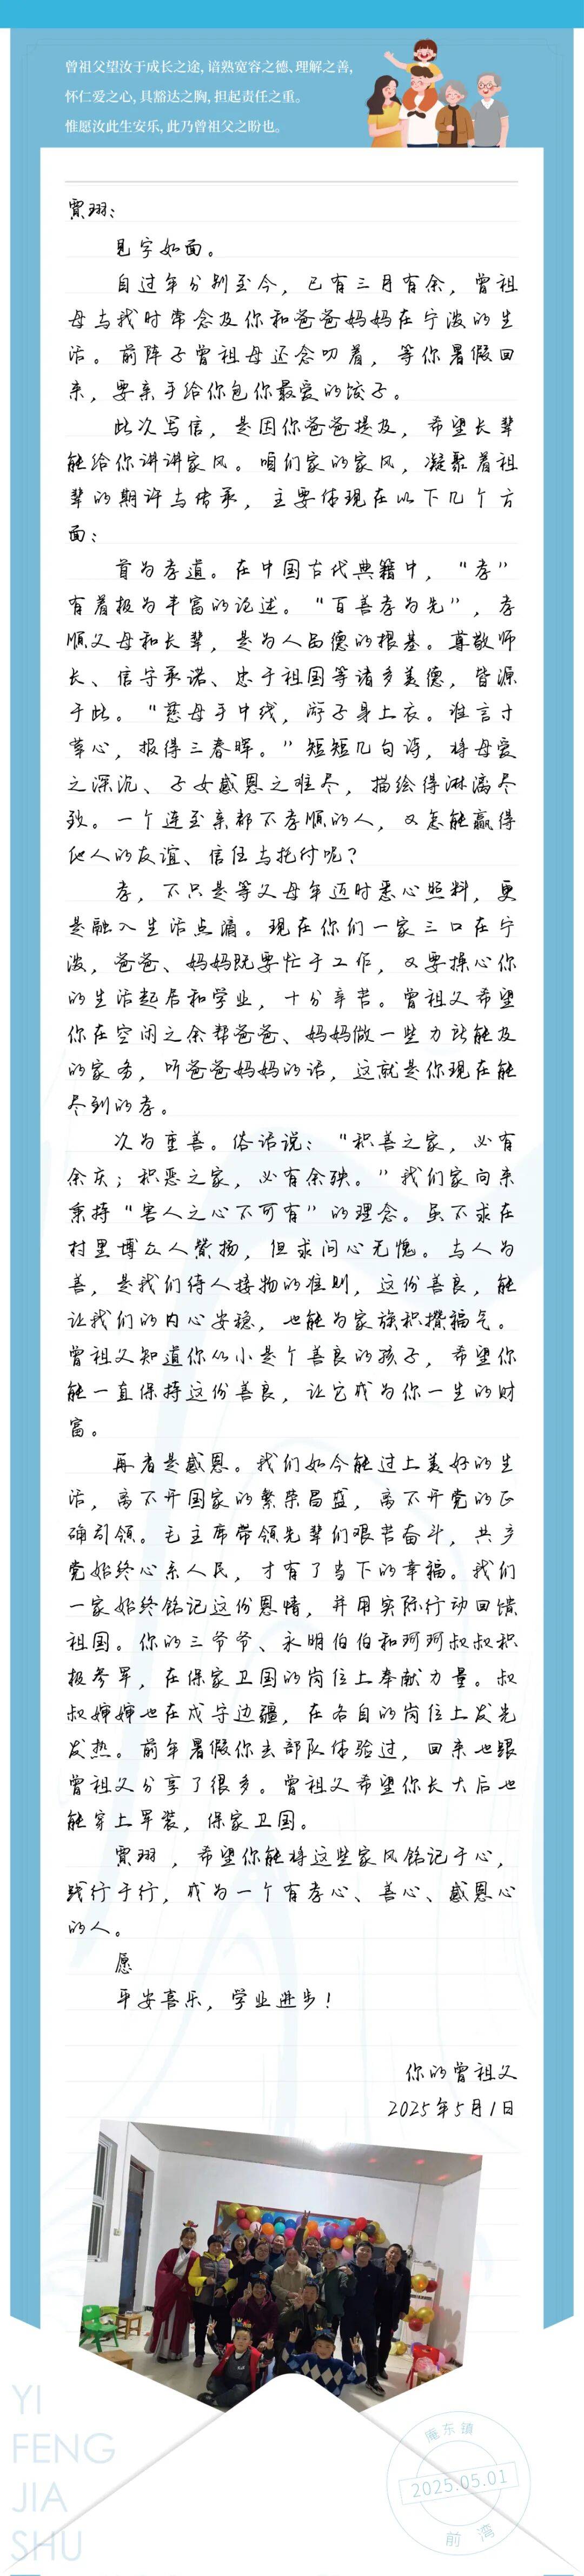 曾祖父望汝于成长之途,谙熟宽容之德、理解之善,
怀仁爱之心,具豁达之胸,担起责任之重。
惟愿汝此生安乐,此乃曾祖父之盼也。
贾翊：
见字如面。
自过年分别至今，已有三月有余，曾祖
母与我时常念及你和爸爸妈妈在宁波的生
活。前阵子曾祖母还念叨着，等你暑假回
来，要亲手给你包你最爱的饺子。
此次写信，是因你爸爸提及，希望长辈
能给你讲讲家风。咱们家的家风，凝聚着祖
辈的期许与传承，主要体现在以下几个方
面：
首为孝道。在中国古代典籍中，“孝”
有着极为丰富的论述。“百善孝为先”，孝
顺父母和长辈，是为人品德的根基。尊敬师
长、信守承诺、忠于祖国等诸多美德，皆源
于此。“慈母手中线，游子身上衣。谁言寸
草心，报得三春晖。”短短几句诗，将母爱
之深沉、子女感恩之难尽，描绘得淋漓尽
致。一个连至亲都不孝顺的人，又怎能赢得
他人的友谊、信任与托付呢？
孝，不只是等父母年迈时悉心照料，更
是融入生活点滴。现在你们一家三口在宁
波，爸爸、妈妈既要忙于工作，又要操心你
的生活起居和学业，十分辛苦。曾祖父希望
你在空闲之余帮爸爸、妈妈做一些力所能及
的家务，听爸爸妈妈的话，这就是你现在能
尽到的孝。
次为重善。俗话说：“积善之家，必有
余庆；积恶之家，必有余殃。”我们家向来
秉持“害人之心不可有”的理念。虽不求在
村里博众人赞扬，但求问心无愧。与人为
善，是我们待人接物的准则，这份善良，能
让我们的内心安稳，也能为家族积攒福气。
曾祖父知道你从小是个善良的孩子，希望你
能一直保持这份善良，让它成为你一生的财
富。
再者是感恩。我们如今能过上美好的生
活，离不开国家的繁荣昌盛，离不开党的正
确引领。毛主席带领先辈们艰苦奋斗，共产
党始终心系人民，才有了当下的幸福。我们
一家始终铭记这份恩情，并用实际行动回馈
祖国。你的三爷爷、永明伯伯和珂珂叔叔积
极参军，在保家卫国的岗位上奉献力量。叔
叔婶婶也在戍守边疆，在各自的岗位上发光
发热。前年暑假你去部队体验过，回来也跟
曾祖父分享了很多。曾祖父希望你长大后也
能穿上军装，保家卫国。
贾翊，希望你能将这些家风铭记于心，
践行于行，成为一个有孝心、善心、感恩心
的人。
愿
平安喜乐，学业进步！
你的曾祖父
2025年5月1日
YI
FENG
JIA
SHU
庵东镇
2025.05.01
前湾